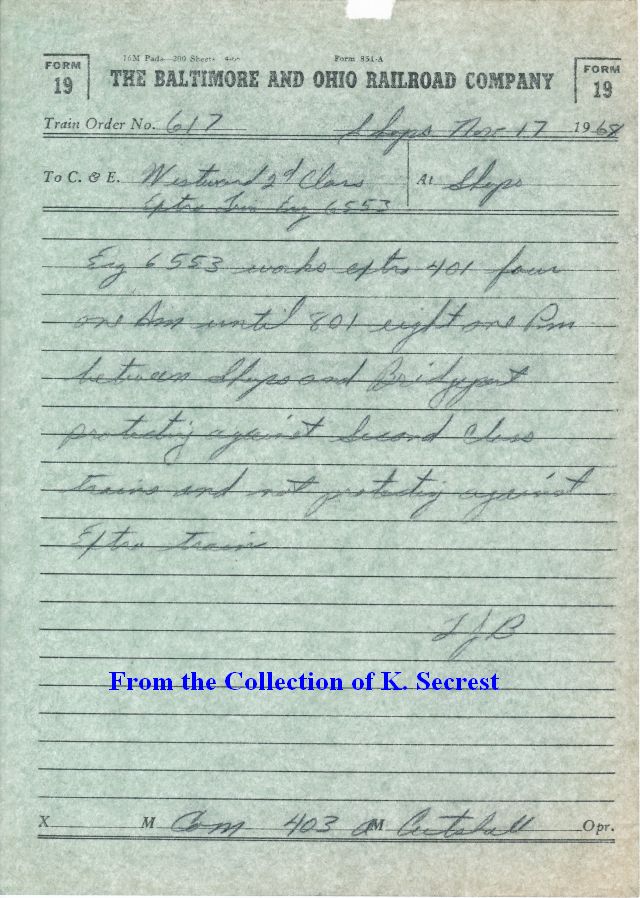 FORM 19
16M Pads—200 Sheets
Form 851-A
FORM 19
THE BALTIMORE AND OHIO RAILROAD COMPANY
Train Order No. 617 Shops Nov 17 1968
To C. & E. Westward 2d Class At Shops
Extra Eng 6553
Eng 6553 works extra 401 four
one Am until 801 eight one Pm
between Shops and Bridgeport
protecting against Second Class
trains and not protecting against
Extra train
From the Collection of K. Secrest
X M Com 403 a M Opr.